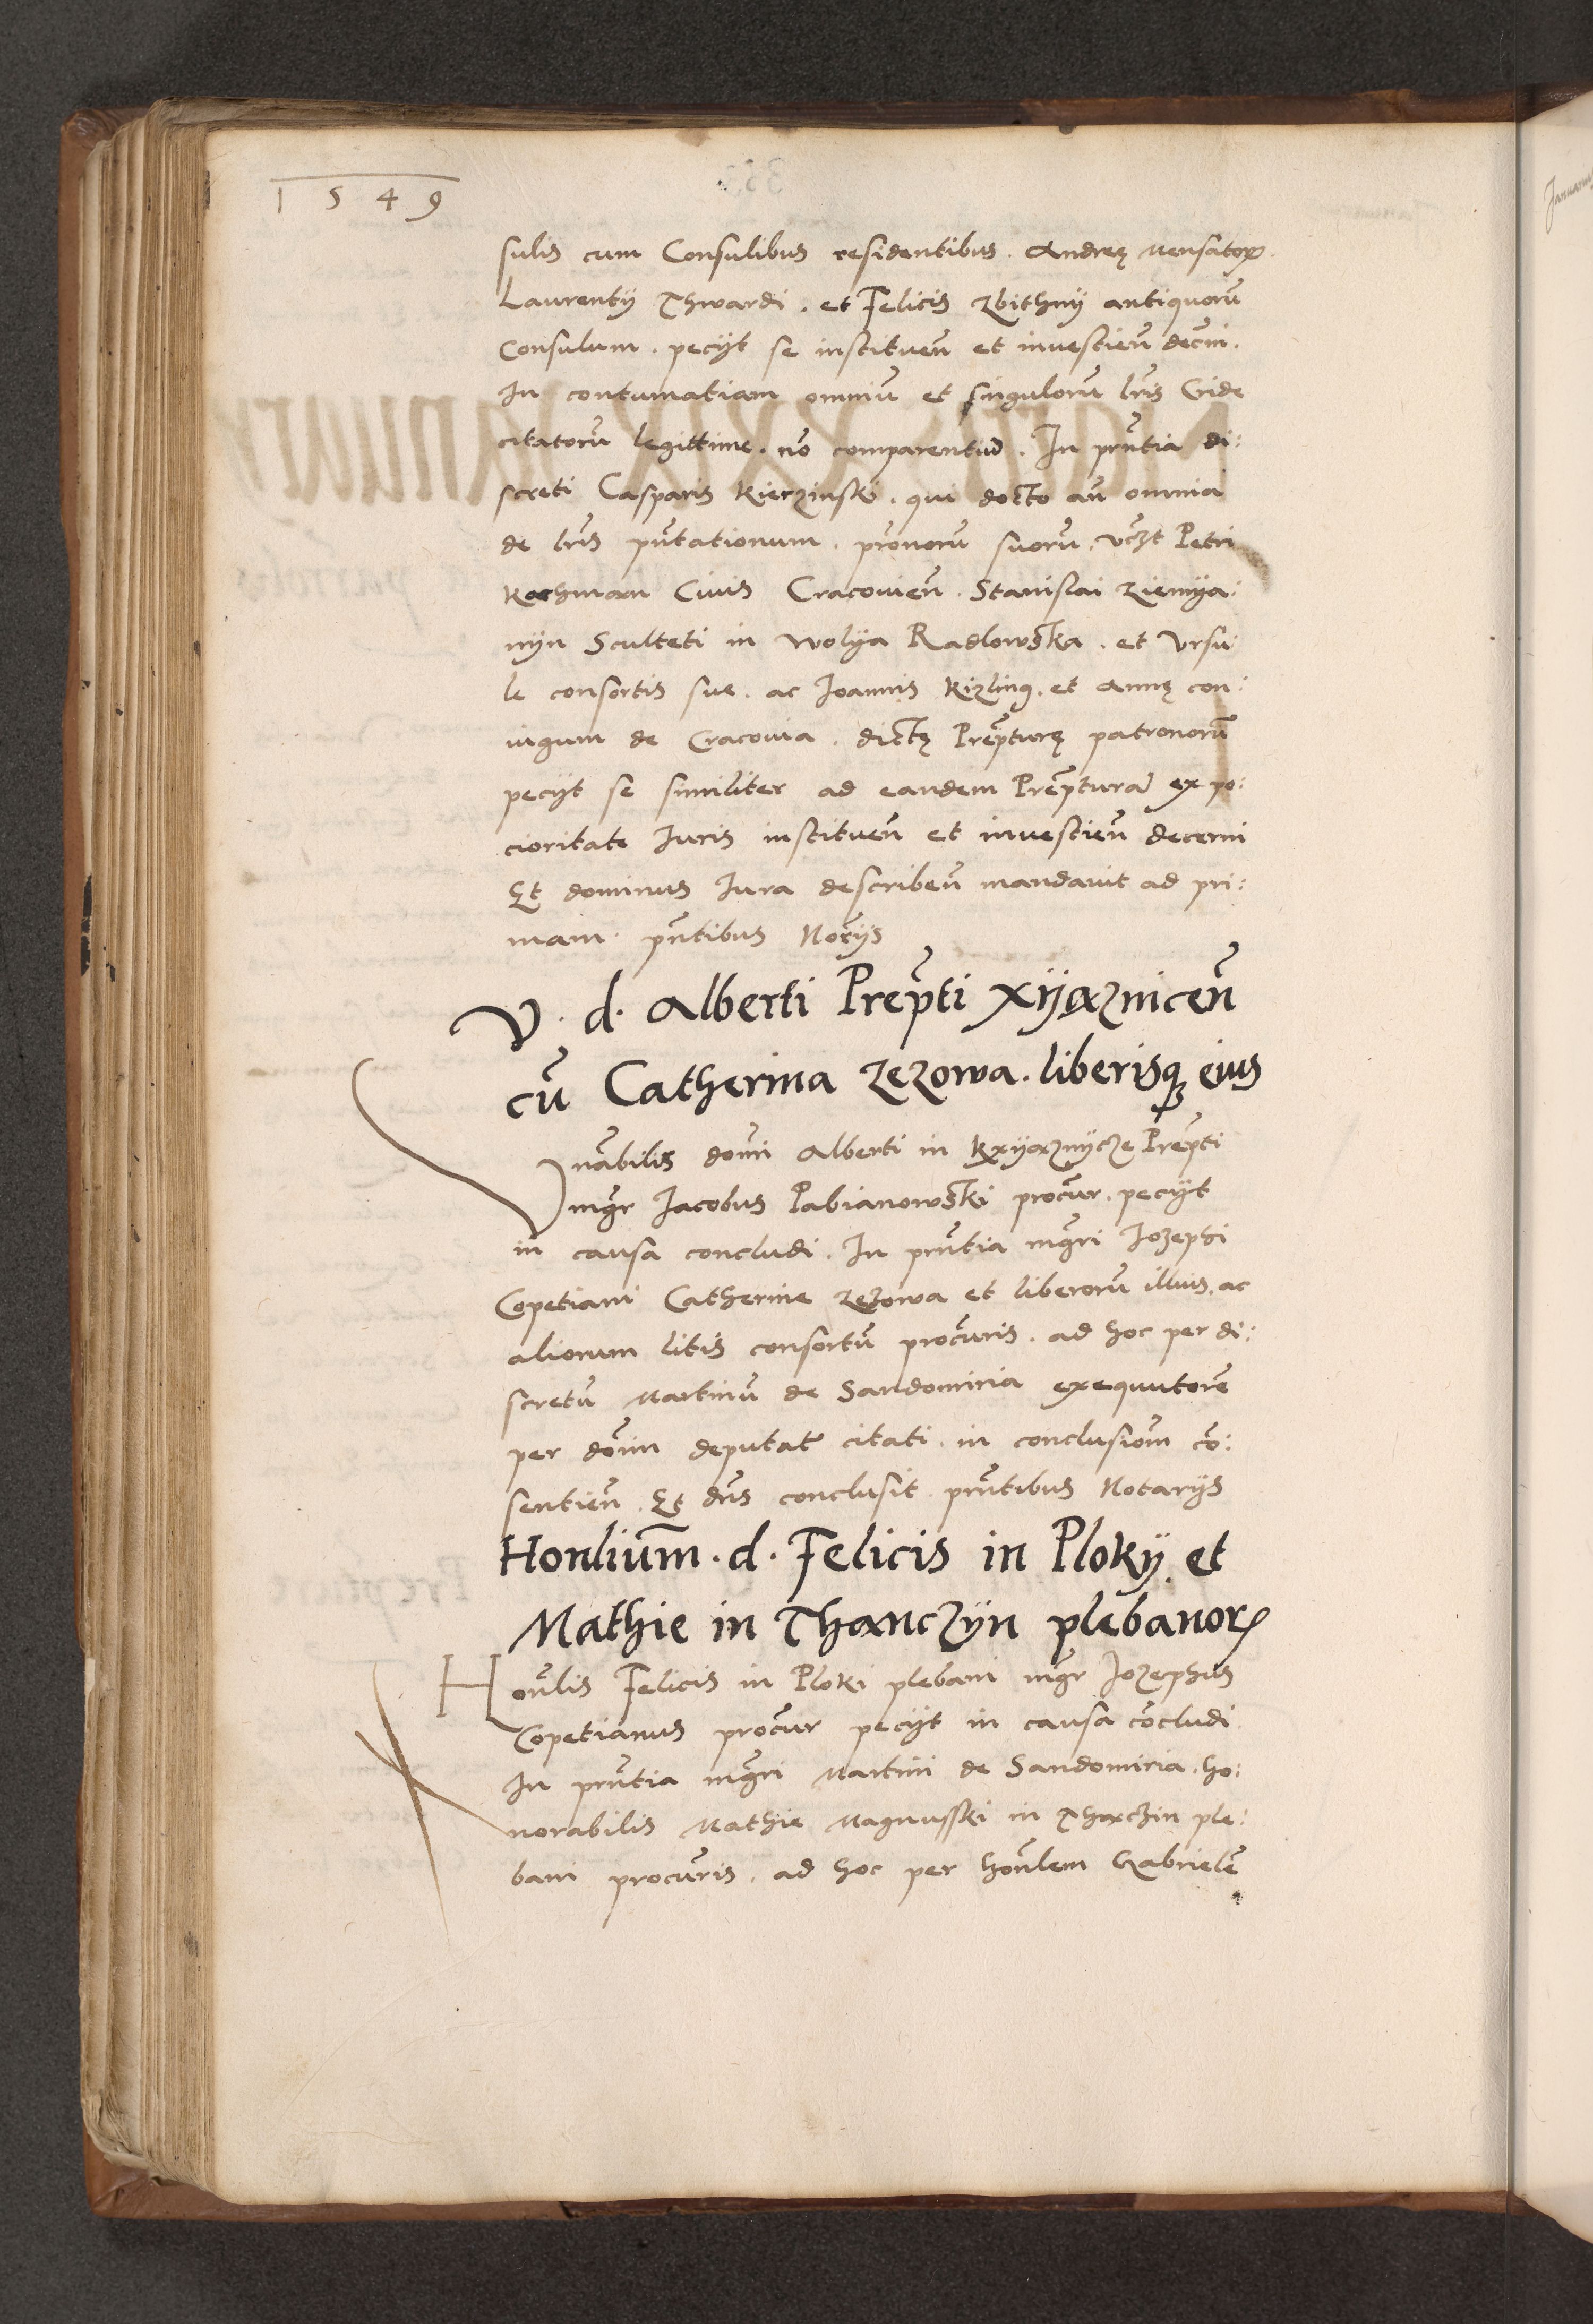 1549
sulis cum Consulibus residentibus. Andreę Mensatoꝝ.
Laurentij Thwardi. et Felicis Zbithnij antiquorū
Consulum. pecijt se instituen̄ et investien̄ decn̄i.
In contumatiam omniū et singulorū lr̄is Cride
citatorū legittime. nō comparentiū. In pr̄ntia di:
screti Casparis Kierzinski. qui docto an̄ omnia
de lr̄is pn̄tationum. pr̄onorū suorū. vcz̄t Petri
Kachman Civis Cracovien̄. Stanislai Ziemya:
nyn Sculteti in Wolya Radlowska. et Ursu
le consortis sue. ac Joannis Kizling. et Annę con:
iugum de Cracovia. dictę Prep̄turę patronorū
pecijt se similiter ad eandem Prep̄turā ex po:
cioritate Juris instituen̄ et investien̄ decerni
Et dominus Jura describen̄ mandavit ad pri:
mam. pn̄tibus Nor̄ijs
V. d. Alberti Prep̄ti Xijąznicen̄
cū Catherina Zezowa. liberisq; eius
Vn̄abilis dom̄i Alberti in Kxyąznycze Prep̄ti
mgr̄ Jacobus Pabianowski procur̄. pecijt
in causa concludi. In pr̄ntia mgr̄i Jozephi
Copetiani Catherine Zezowa et liberorū illius. ac
aliorum litis consortū procur̄is. ad hoc per di:
scretū Martinū de Sandomiria exequutorē
per dom̄ deputat̄ citati. in conclusiom̄ cō:
sentien̄. Et dn̄s conclusit. pr̄ntibus Notarijs
Honliūm. d. Felicis in Ploky. et
Mathie in Thanczijn plebanoꝝ
Hon̄lis Felicis in Ploki plebani mgr̄ Jozephus
Copetianus procur̄ pecijt in causa cōcludi
In pr̄ntia mgr̄i Martini de Sandomiria. ho:
norabilis Mathie Magnusski in Thączin ple:
bani procur̄is. ad hoc per hon̄lem Gabrielē